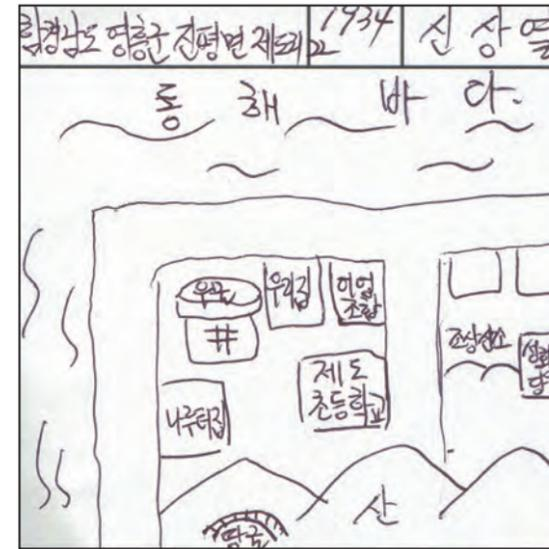 함경남도 영흥군 진평면 제도리 1934 신상열
동해 바다.
우물 우리집 어업
조합
#
조상산소
제도
초등학교
나루터집
산
땅굴